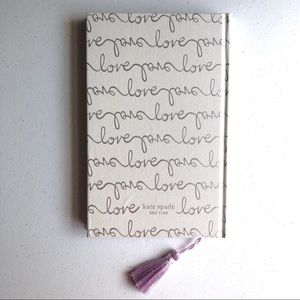 love love love
love love love love
love love love
love love love love
love love love
love love love love
love love love
love love love love
kate spade
NEW YORK